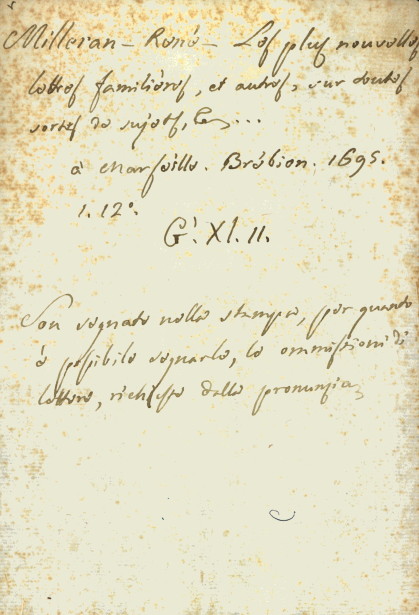 Milleran - René - Les plus nouvelles
lettres familières, et autres, sur toutes
sortes de sujets, &c...
à Marseille. Brébion. 1695.
1. 12°.
G. XI. II.
Son segnate nella stampa, per quanto
è possibile segnarle, le ommissioni di
lettere, richieste dalla pronunzia